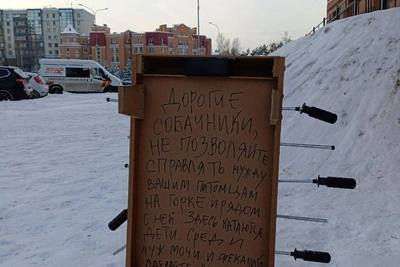 ДОРОГИЕ
СОБАЧНИКИ,
НЕ ПОЗВОЛЯЙТЕ
СПРАВЛЯТЬ НУЖДУ
ВАШИМ ПИТОМЦАМ
НА ГОРКЕ И РЯДОМ
С НЕЙ. ЗДЕСЬ КАТАЮТСЯ
ДЕТИ СРЕДИ
ЛУЖ МОЧИ И ФЕКАЛИЙ